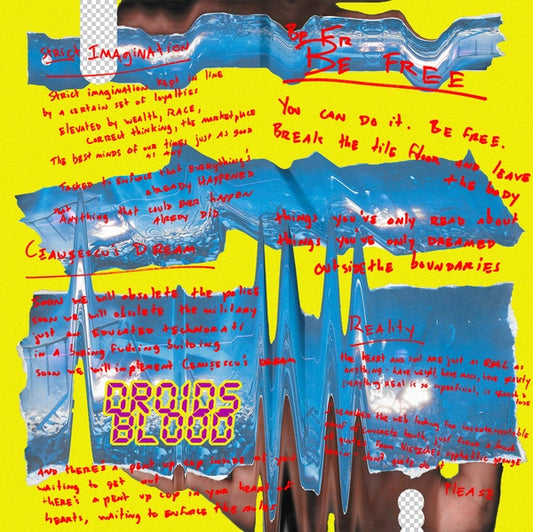 Strict IMAGINATION
Strict imagination kept in line
by a certain set of loyalties
Elevated by wealth, RACE,
correct thinking, the marketplace
The best minds of our times just as good
as any
TASKED to ENFORCE that EVERYTHING'S
ALREADY HAPPENED
that Anything that could ever happen
Already Did
CEAUSESCU'S DREAM
Soon we will obsolete the police
soon we will obsolete the military
just an EDUCATED technorati
in a boring fucking building
soon we will implement Ceausescu's DREAM
DROIDS
BLOOD
AND thERE'S A pENt up cop inside of you
waiting to get out
thERE'S A pent up cop in your heart of
hearts, waiting to enforce the rules
BE FR
BE FREE
You CAN DO it. BE FREE.
BREAK the tile floor and leave
the body
things you've only READ about
things you've only DREAMED
outside the boundaries
Reality
the HEART AND soul ARE just as REAL as
anything - have weight have mass, have gravity
Everything REAL is so superficial, it
I searched the web looking for
of concrete truth, just found a
of quotes from
don't quite do it
PLEASE